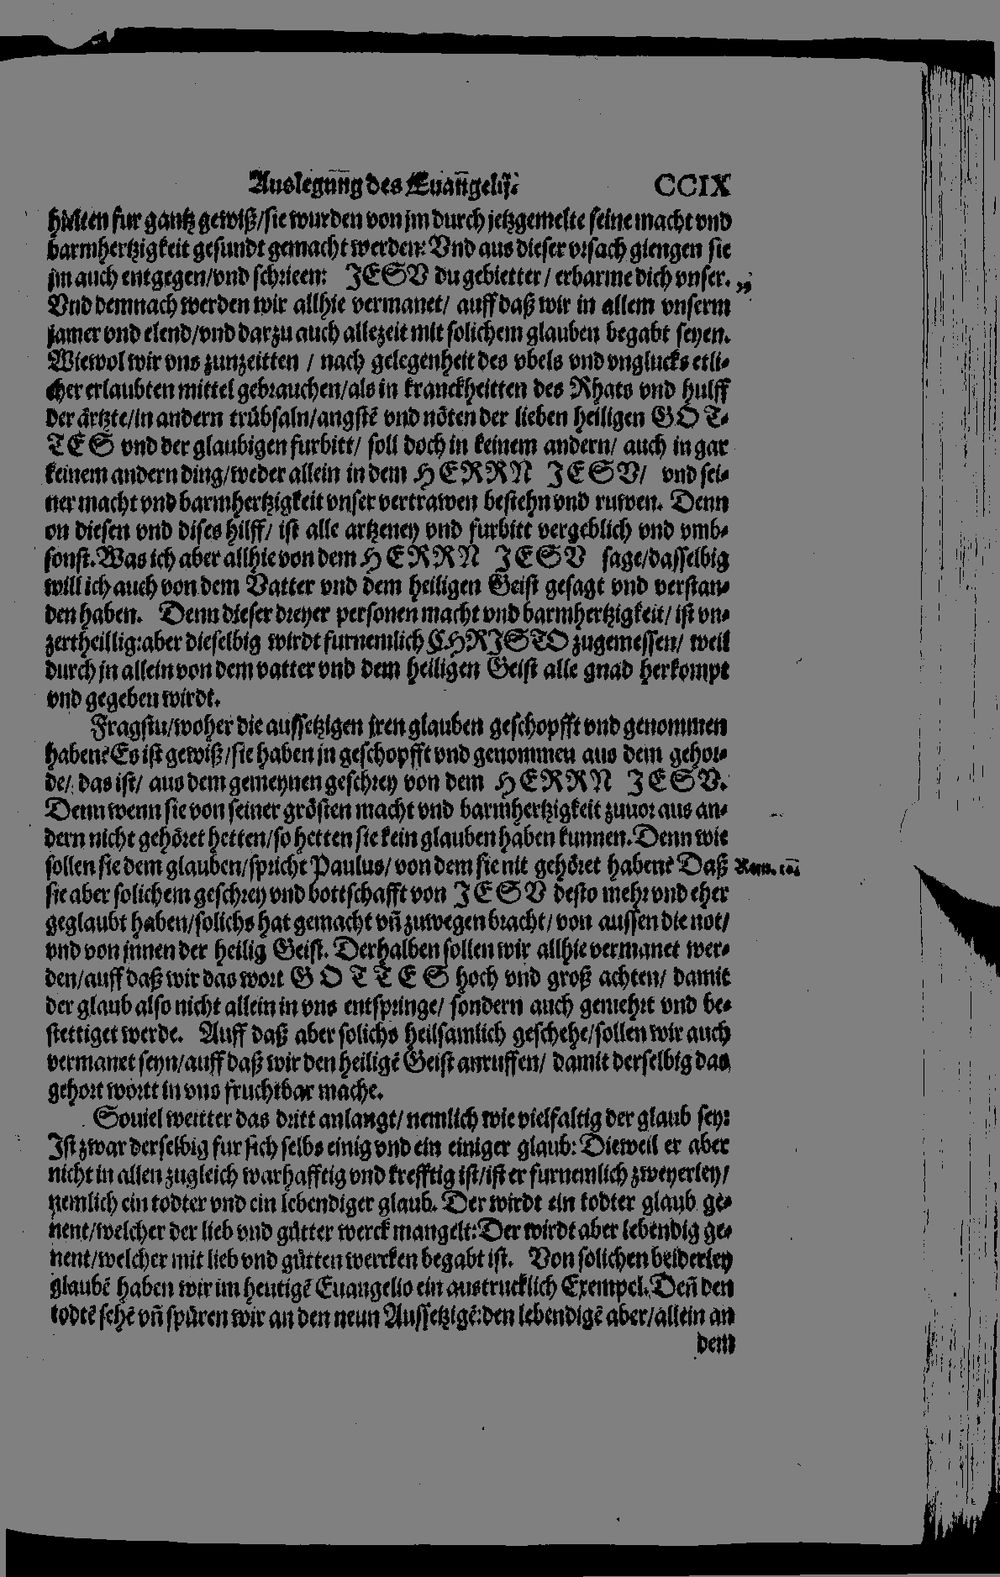 Auslegung des Euangelij. CCIX
hielten fur gantz gewiß/sie wurden von jm durch jetzgemelte seine macht vnd
barmhertzigkeit gesundt gemacht werden: Vnd aus dieser vrsach giengen sie
jm auch entgegen/vnd schrieen: JESV du gebietter/ erbarme dich vnser.
Vnd demnach werden wir allhie vermanet/ auff daß wir in allem vnserm
jamer vnd elend/vnd darzu auch allezeit mit solichem glauben begabt seyen.
Wiewol wir vns zunzeitten / nach gelegenheit des vbels vnd vnglucks etli-
cher erlaubten mittel gebrauchen/als in kranckheitten des Rhats vnd hulff
der ärtzte/in andern trübsaln/angstē vnd nöten der lieben heiligen GOT-
TES vnd der glaubigen furbitt/ soll doch in keinem andern/ auch in gar
keinem andern ding/weder allein in dem HERRN JESV/ vnd sei-
ner macht vnd barmhertzigkeit vnser vertrawen bestehn vnd ruwen. Denn
on diesen vnd dises hilff/ ist alle artzeney vnd furbitt vergeblich vnd vmb-
sonst. Was ich aber allhie von dem HERRN JESV sage/dasselbig
will ich auch von dem Vatter vnd dem heiligen Geist gesagt vnd verstan-
den haben. Denn dieser dreyer personen macht vnd barmhertzigkeit/ ist vn-
zertheillig: aber dieselbig wirdt furnemlich CHRISTO zugemessen/ weil
durch jn allein von dem vatter vnd dem heiligen Geist alle gnad herkompt
vnd gegeben wirdt.
Fragstu/woher die aussetzigen jren glauben geschopfft vnd genommen
haben? Es ist gewiß/sie haben jn geschopfft vnd genommen aus dem gehor-
de/ das ist/ aus dem gemeynen geschrey von dem HERRN JESV.
Denn wenn sie von seiner grösten macht vnd barmhertzigkeit zuuor aus an-
dern nicht gehöret hetten/so hetten sie kein glauben haben kunnen. Denn wie
sollen sie dem glauben/spricht Paulus/ von dem sie nit gehöret haben? Daß
Rom.
sie aber solichem geschrey vnd bottschafft von JESV desto mehr vnd eher
geglaubt haben/solichs hat gemacht vñ zuwegen bracht/ von aussen die not/
vnd von jnnen der heilig Geist. Derhalben sollen wir allhie vermanet wer-
den/auff daß wir das wort GOTTES hoch vnd groß achten/ damit
der glaub also nicht allein in vns entspringe/ sondern auch gemehrt vnd be-
stettiget werde. Auff daß aber solichs heilsamlich geschehe/sollen wir auch
vermanet seyn/auff daß wir den heiligē Geist anruffen/ damit derselbig das
gehort wortt in vns fruchtbar mache.
Souiel weitter das dritt anlangt/ nemlich wie vielfaltig der glaub sey:
Ist zwar derselbig fur sich selbs einig vnd ein einiger glaub: Dieweil er aber
nicht in allen zugleich warhafftig vnd krefftig ist/ist er furnemlich zweyerley/
nemlich ein todter vnd ein lebendiger glaub. Der wirdt ein todter glaub ge-
nent/welcher der lieb vnd gütter werck mangelt: Der wirdt aber lebendig ge-
nent/welcher mit lieb vnd gütten wercken begabt ist. Von solichen beiderley
glaubē haben wir im heutigē Euangelio ein austrucklich Exempel. Deñ den
todtē sehē vñ spüren wir an den neun Aussetzigē: den lebendigē aber/allein an
dem